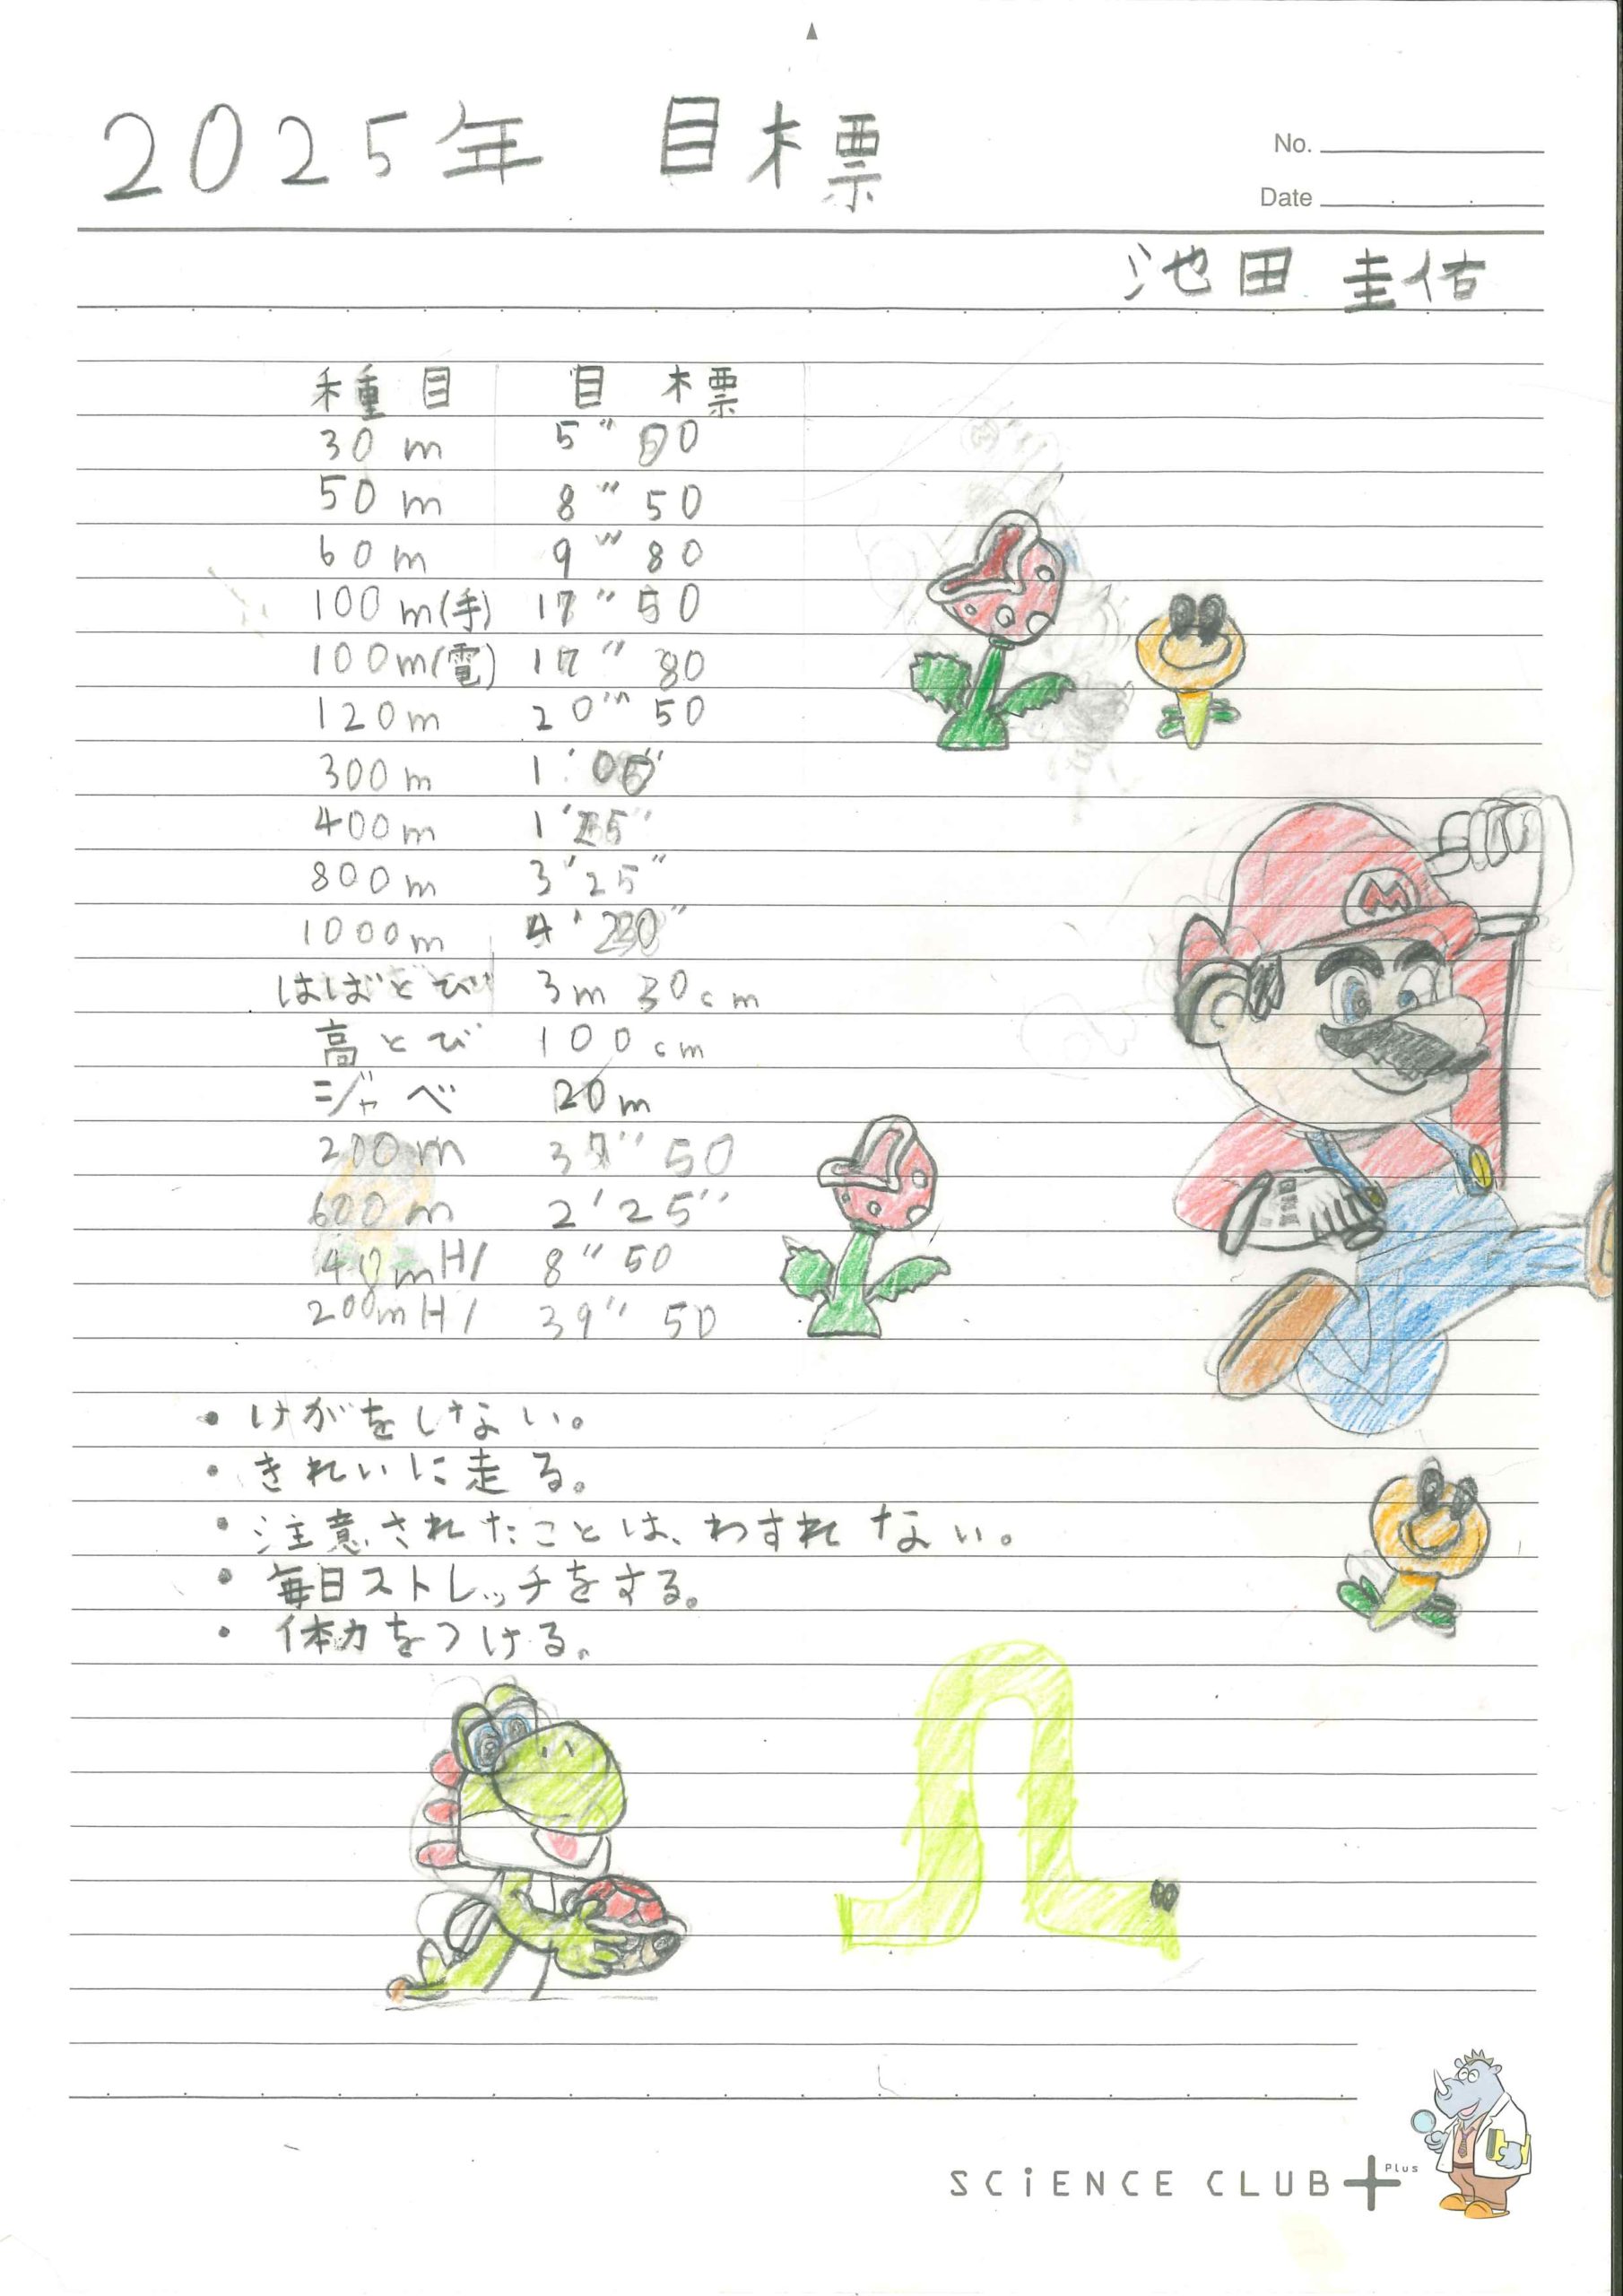 2025年 目標
No.
Date
池田 圭佑
種目 目標
30m 5"00
50m 8"50
60m 9"80
100m(手) 17"50
100m(電) 17"80
120m 20"50
300m 1'
400m 1'
800m 3'25"
1000m 4'
はばとび 3m 30cm
高とび 100cm
ジャベ 20m
200m 37"50
600m 2'25"
40mH/ 8"50
200mH/ 39"50
・けがをしない。
・きれいに走る。
・注意されたことは、わすれない。
・毎日ストレッチをする。
・体力をつける。
SCiENCE CLUB+Plus